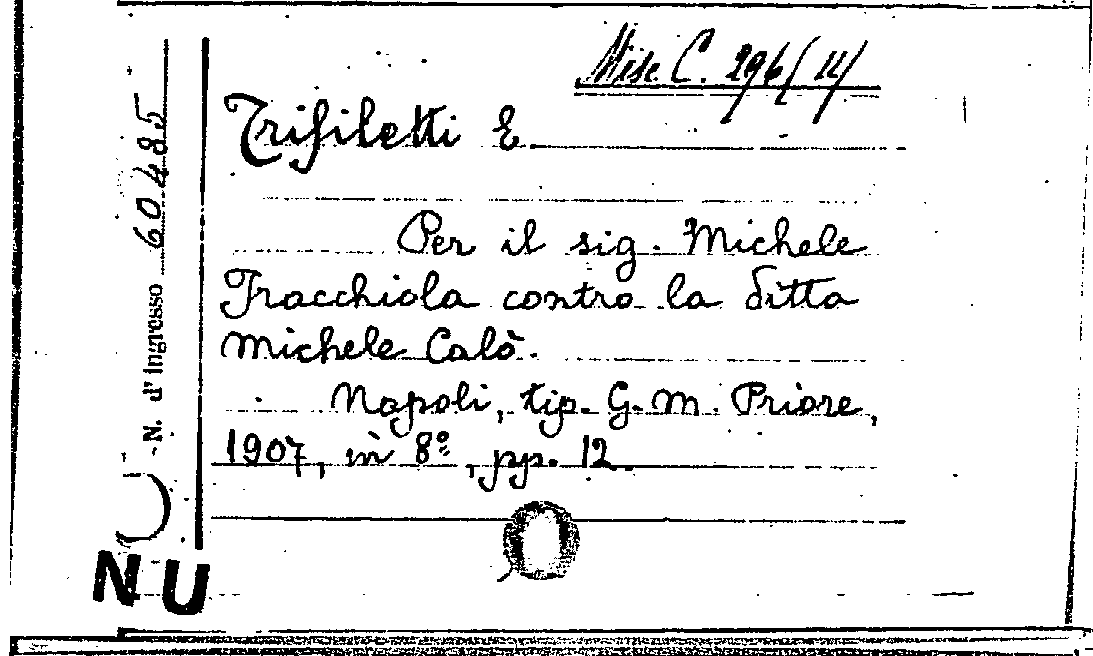 Misc C. 296/14/
Trifiletti E.
Per il sig. Michele
Fracchiola contro la ditta
Michele Calò.
Napoli, tip. G. M. Priore,
1907, in 8º, pp. 12.
N. d'Ingresso 60485
NU